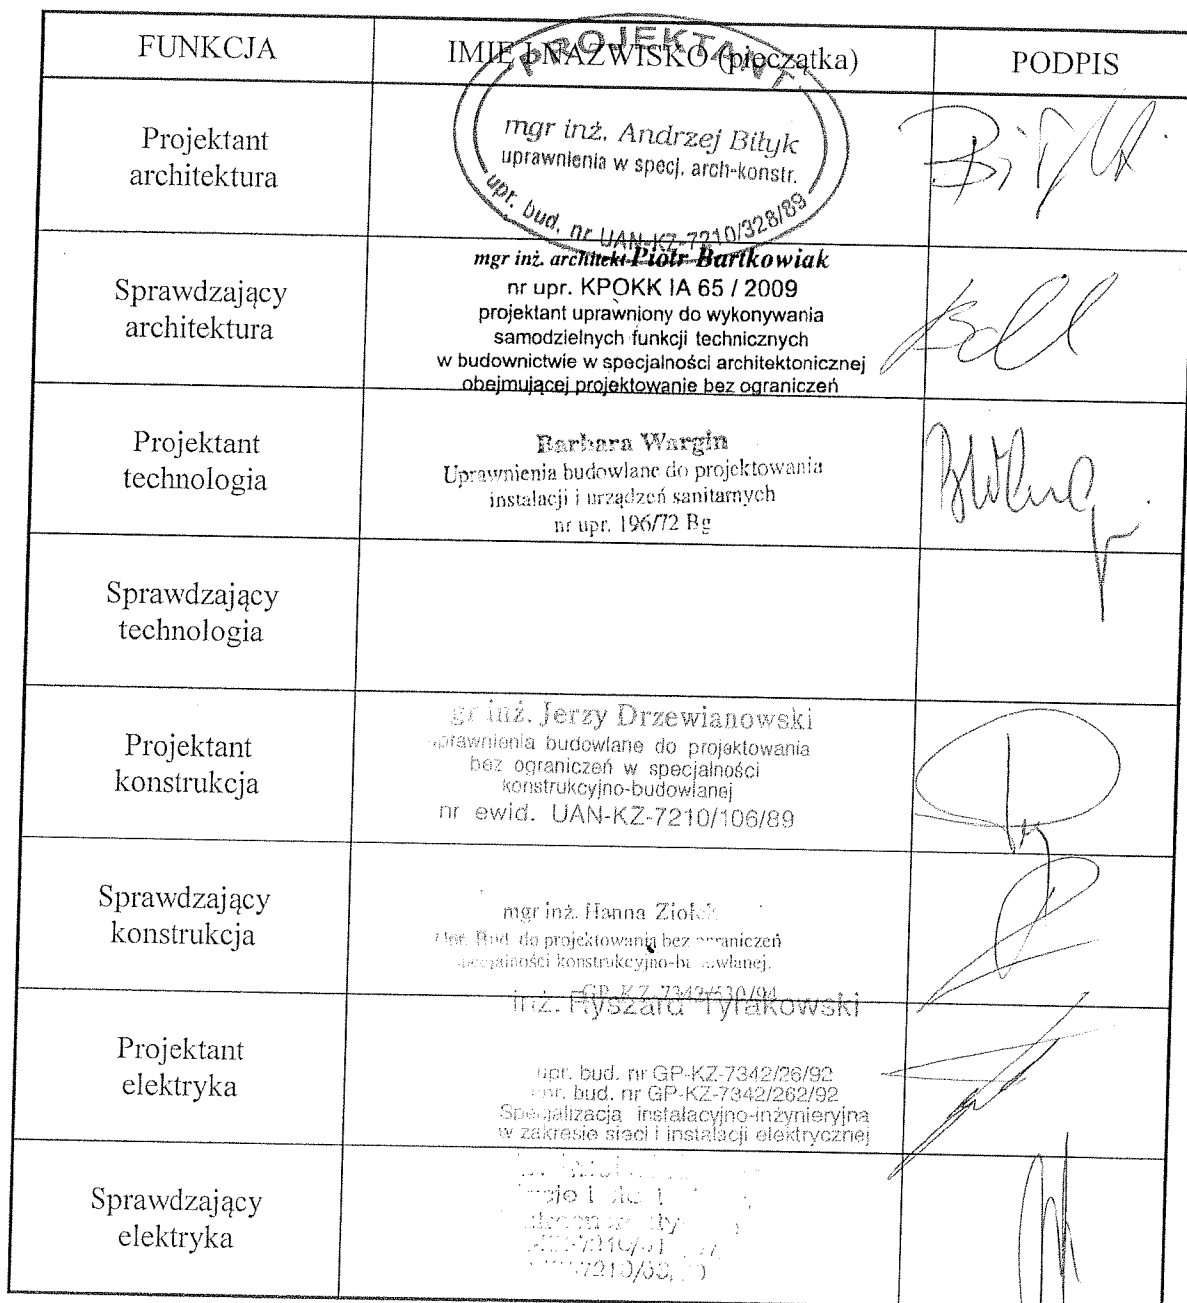 FUNKCJA
IMIĘ I NAZWISKO (pieczątka)
PODPIS
Projektant
architektura
PROJEKTANT
mgr inż. Andrzej Biłyk
uprawnienia w specj. arch-konstr.
upr. bud. nr UAN-KZ-7210/328/89
Sprawdzający
architektura
mgr inż. architekt Piotr Bartkowiak
nr upr. KPOKK IA 65 / 2009
projektant uprawniony do wykonywania
samodzielnych funkcji technicznych
w budownictwie w specjalności architektonicznej
obejmującej projektowanie bez ograniczeń
Projektant
technologia
Barbara Wargin
Uprawnienia budowlane do projektowania
instalacji i urządzeń sanitarnych
nr upr. 196/72 Bg
Sprawdzający
technologia
Projektant
konstrukcja
gr inż. Jerzy Drzewianowski
uprawnienia budowlane do projektowania
bez ograniczeń w specjalności
konstrukcyjno-budowlanej
nr ewid. UAN-KZ-7210/106/89
Sprawdzający
konstrukcja
mgr inż. Hanna
Upr. Bud. do projektowania bez ograniczeń
specjalności konstrukcyjno-budowlanej.
GP-KZ-7342/530/94
Projektant
elektryka
inż. Ryszard Tyrakowski
upr. bud. nr GP-KZ-7342/26/92
upr. bud. nr GP-KZ-7342/262/92
Specjalizacja instalacyjno-inżynieryjna
w zakresie sieci i instalacji elektrycznej
Sprawdzający
elektryka